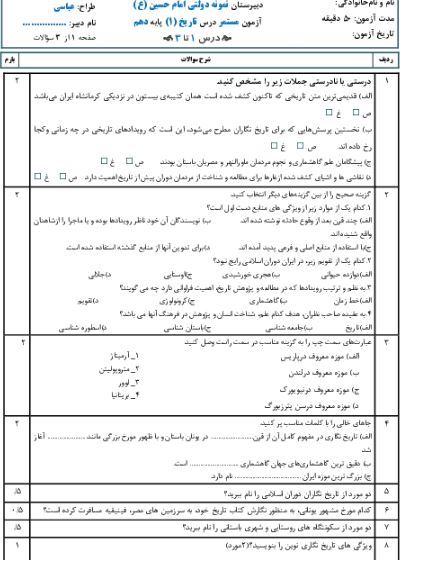 نام و نام‌خانوادگی:
مدت آزمون: ۵۰ دقیقه
تاریخ آزمون:
دبیرستان نمونه دولتی امام حسین (ع)
آزمون مستمر درس تاریخ (۱) پایه دهم
درس ۱ تا ۳
طراح: عباسی
نام دبیر: ..............
صفحه ۱ از ۳ سؤالات
ردیف شرح سوالات بارم
۱ درستی یا نادرستی جملات زیر را مشخص کنید. ۲
الف) قدیمی‌ترین متن تاریخی که تاکنون کشف شده است همان کتیبه‌ی بیستون در نزدیکی کرمانشاه ایران می‌باشد
ص □ غ □
ب) نخستین پرسش‌هایی که برای تاریخ نگاران مطرح می‌شود، این است که رویدادهای تاریخی در چه زمانی وکجا
رخ داده اند. ص □ غ □
ج) پیشگامان علم گاهشماری و نجوم مردمان ماورالنهر و مصریان باستان بودند ص □ غ □
د) نقاشی ها و اشیای کشف شده ازغارها برای مطالعه و شناخت از مردمان دوران پیش از تاریخ اهمیت دارد. ص □ غ □
۲ گزینه صحیح را از بین گزینه‌های دیگر انتخاب کنید. ۲
۱.کدام یک از موارد زیر از ویژگی های منابع دست اول است؟
الف) چند قرن بعد از وقوع حادثه نوشته شده اند. ب) نویسندگان آن خود ناظر رویدادها بوده و یا ماجرا را ازشاهدان
واقع شنیده‌اند.
ج)با استفاده از منابع اصلی و فرعی پدید آمده اند. د)برای تدوین آنها از منابع گذشته استفاده شده است.
۲.کدام یک از تقویم زیر، در ایران دوران اسلامی رایج نبود؟
الف)دوازده حیوانی ب)هجری خورشیدی ج)اوستایی د)جلالی
۳.به نظم و ترتیب رویدادها که در مطالعه و پژوهش تاریخ، اهمیت فراوانی دارد چه می گویند؟
الف)خط زمان ب)گاهشماری ج)کرونولوژی د)تقویم
۴.به عقیده صاحب نظران، هدف کدام علم، شناخت انسان و پژوهش در فرهنگ آنها می باشد؟
الف)تاریخ ب)جامعه شناسی ج)باستان شناسی د)اسطوره شناسی
۳ عبارت‌های سمت چپ را به گزینه مناسب در سمت راست وصل کنید. ۲
الف) موزه معروف درپاریس ۱_ آرمیتاژ
ب) موزه معروف درلندن ۲_ متروپولیتن
ج) موزه معروف درنیویورک ۳_ لوور
د) موزه معروف درسن پترزبورگ ۴_ بریتانیا
۴ جاهای خالی را با کلمات مناسب پر کنید. ۲
الف) تاریخ نگاری در مفهوم کامل آن از قرن................ در یونان باستان و با ظهور مورخ بزرگی مانند................ آغاز
شد.
ب) دقیق ترین گاهشماری‌های جهان گاهشماری .................... است.
ج) بزرگ ترین موزه ایران .......................... نام دارد.
۵ دو مورد از تاریخ نگاران دوران اسلامی را نام ببرید؟ ۵/
۶ کدام مورخ مشهور یونانی، به منظور نگارش کتاب تاریخ خود، به سرزمین های مصر، فینیقیه مسافرت کرده است؟ ۰/۵
۷ دو مورد از سکونتگاه های روستایی و شهری باستانی را نام ببرید؟ ۵/
۸ ویژگی های تاریخ نگاری نوین را بنویسید؟(۲مورد) ۱